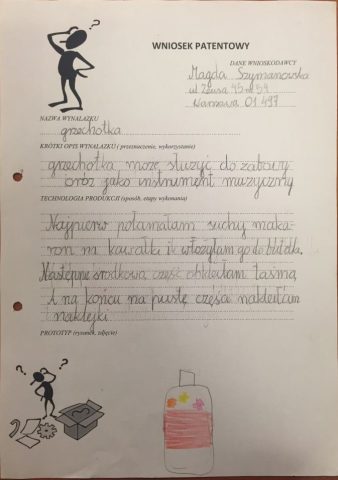 ?
WNIOSEK PATENTOWY
DANE WNIOSKODAWCY
Magda Szymanowska
ul Zeusa 45 m 59
Warszawa 01 497
NAZWA WYNALAZKU
grzechotka
KRÓTKI OPIS WYNALAZKU ( przeznaczenie, wykorzystanie)
grzechotka może służyć do zabawy
oraz jako instrument muzyczny
TECHNOLOGIA PRODUKCJI (sposób, etapy wykonania)
Najpierw połamałam suchy maka-
ron na kawałki i włożyłam go do
Następne środkową część okleiłam taśmą
A na końcu na pustę częścia nakleiłam
naklejki.
PROTOTYP (rysunek, zdjęcie)
? ?